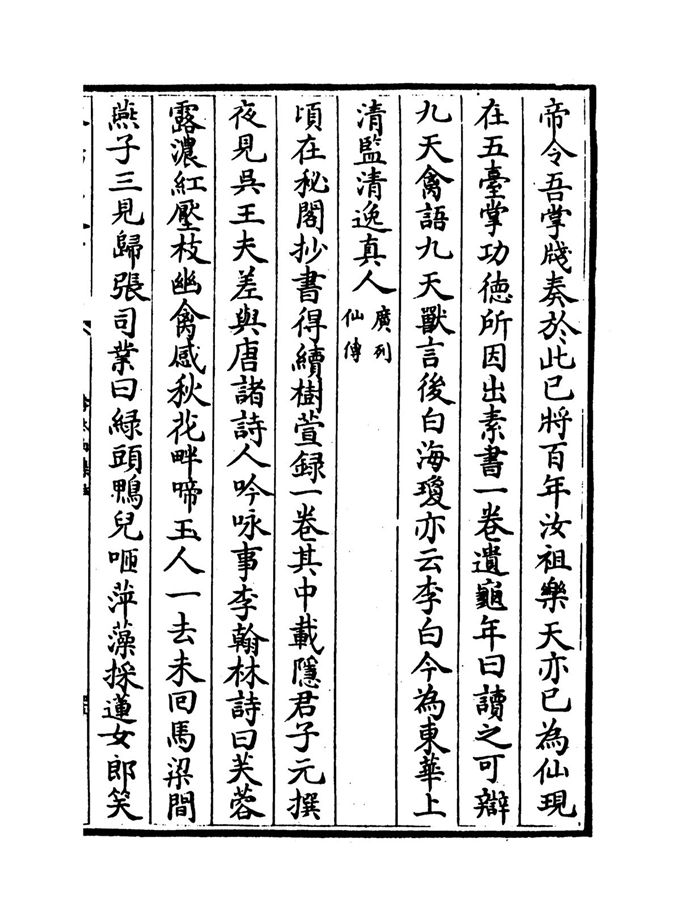 帝令吾掌牋奏於此已將百年汝祖樂天亦已為仙現
在五臺掌功徳所因出素書一卷遺龜年曰讀之可辯
九天禽語九天獸言後白海瓊亦云李白今為東華上
清監清逸真人廣列仙傳
頃在秘閣抄書得續樹萱録一卷其中載隱君子元撰
夜見呉王夫差與唐諸詩人吟咏事李翰林詩曰芙蓉
露濃紅壓枝幽禽感秋花畔啼玉人一去未回馬梁間
燕子三見歸張司業曰緑頭鴨兒咂萍藻採蓮女郎笑